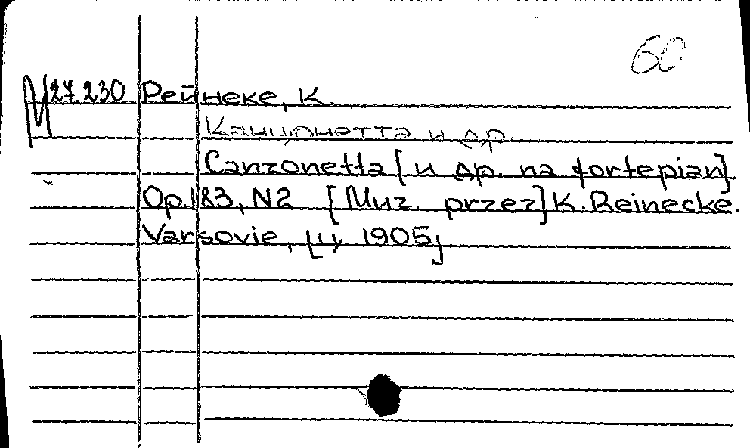 60
М 27.230 Рейнеке, К.
Канцонетта и др.
Canzonetta [и др. na fortepian].
Op.183, N2 [Muz. przez] K. Reinecke.
Varsovie, [ц. 1905]